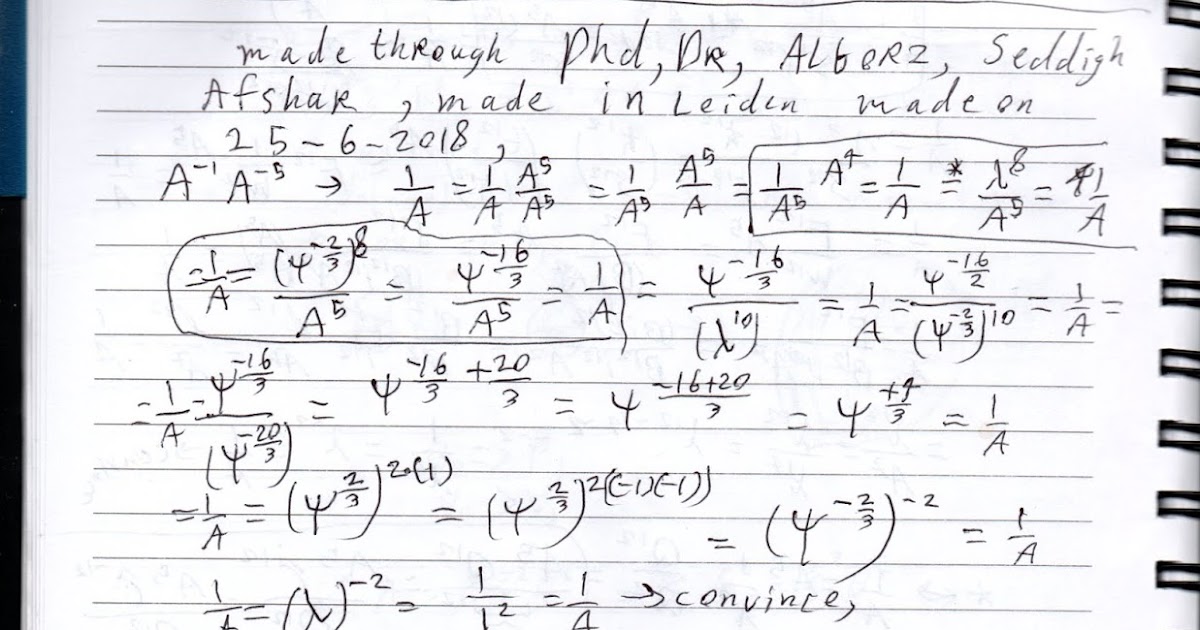 made through Phd, DR, ALBORZ, Seddigh
Afshar, made in Leiden made on
25-6-2018,
A⁻¹ A⁻⁵ → 1/A = 1/A A⁵/A⁵ = 1/A⁵ A⁵/A = 1/A⁵ A⁴ = 1/A * = λ⁸/A⁵ = 1/A
= 1/A = (Ψ^(-2/3))⁸/A⁵ = Ψ^(-16/3)/A⁵ = 1/A = Ψ^(-16/3)/(λ¹⁰) = 1/A = Ψ^(-16/2)/(Ψ^(-2/3))¹⁰ = 1/A =
= 1/A = Ψ^(-16/3)/(Ψ^(-20/3)) = Ψ^(-16/3 + 20/3) = Ψ^((-16+20)/3) = Ψ^(+4/3) = 1/A
= 1/A = (Ψ^(2/3))^(2·(1)) = (Ψ^(2/3))^(2(-1)(-1)) = (Ψ^(-2/3))^(-2) = 1/A
1/A = (λ)⁻² = 1/λ² = 1/A → convince,